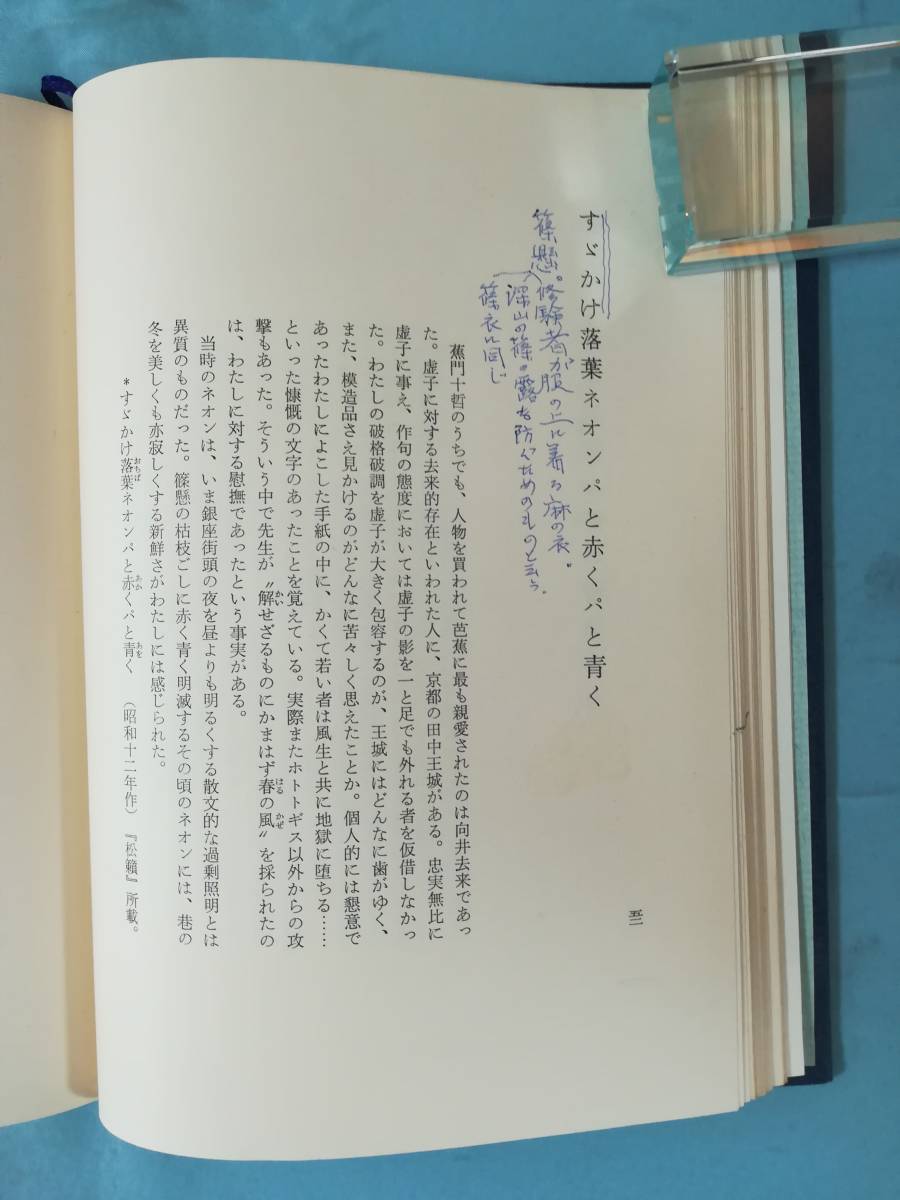 すゞかけ落葉ネオンパと赤くパと青く
篠懸。修験者が服の上に着る麻の衣。
深山の篠の露を防ぐためのものと云う。
篠衣に同じ
蕉門十哲のうちでも、人物を買われて芭蕉に最も親愛されたのは向井去来であっ
た。虚子に対する去来的存在といわれた人に、京都の田中王城がある。忠実無比に
虚子に事え、作句の態度においては虚子の影を一と足でも外れる者を仮借しなかっ
た。わたしの破格破調を虚子が大きく包容するのが、王城にはどんなに歯がゆく、
また、模造品さえ見かけるのがどんなに苦々しく思えたことか。個人的には懇意で
あったわたしによこした手紙の中に、かくて若い者は風生と共に地獄に堕ちる……
といった慷慨の文字のあったことを覚えている。実際またホトトギス以外からの攻
撃もあった。そういう中で先生が〝解せざるものにかまはず春の風〟を採られたの
は、わたしに対する慰撫であったという事実がある。
当時のネオンは、いま銀座街頭の夜を昼よりも明るくする散文的な過剰照明とは
異質のものだった。篠懸の枯枝ごしに赤く青く明滅するその頃のネオンには、巷の
冬を美しくも亦寂しくする新鮮さがわたしには感じられた。
＊すゞかけ落葉ネオンパと赤くパと青く　（昭和十二年作）『松籟』所載。
五三